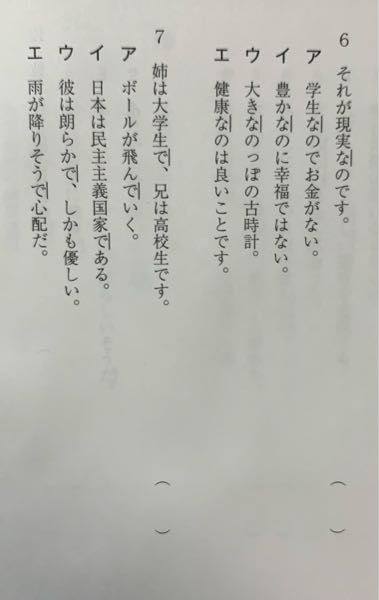 6 それが現実なのです。
ア 学生なのでお金がない。
イ 豊かなのに幸福ではない。
ウ 大きなのっぽの古時計。
エ 健康なのは良いことです。
( )
7 姉は大学生で、兄は高校生です。
ア ボールが飛んでいく。
イ 日本は民主主義国家である。
ウ 彼は朗らかで、しかも優しい。
エ 雨が降りそうで心配だ。
( )